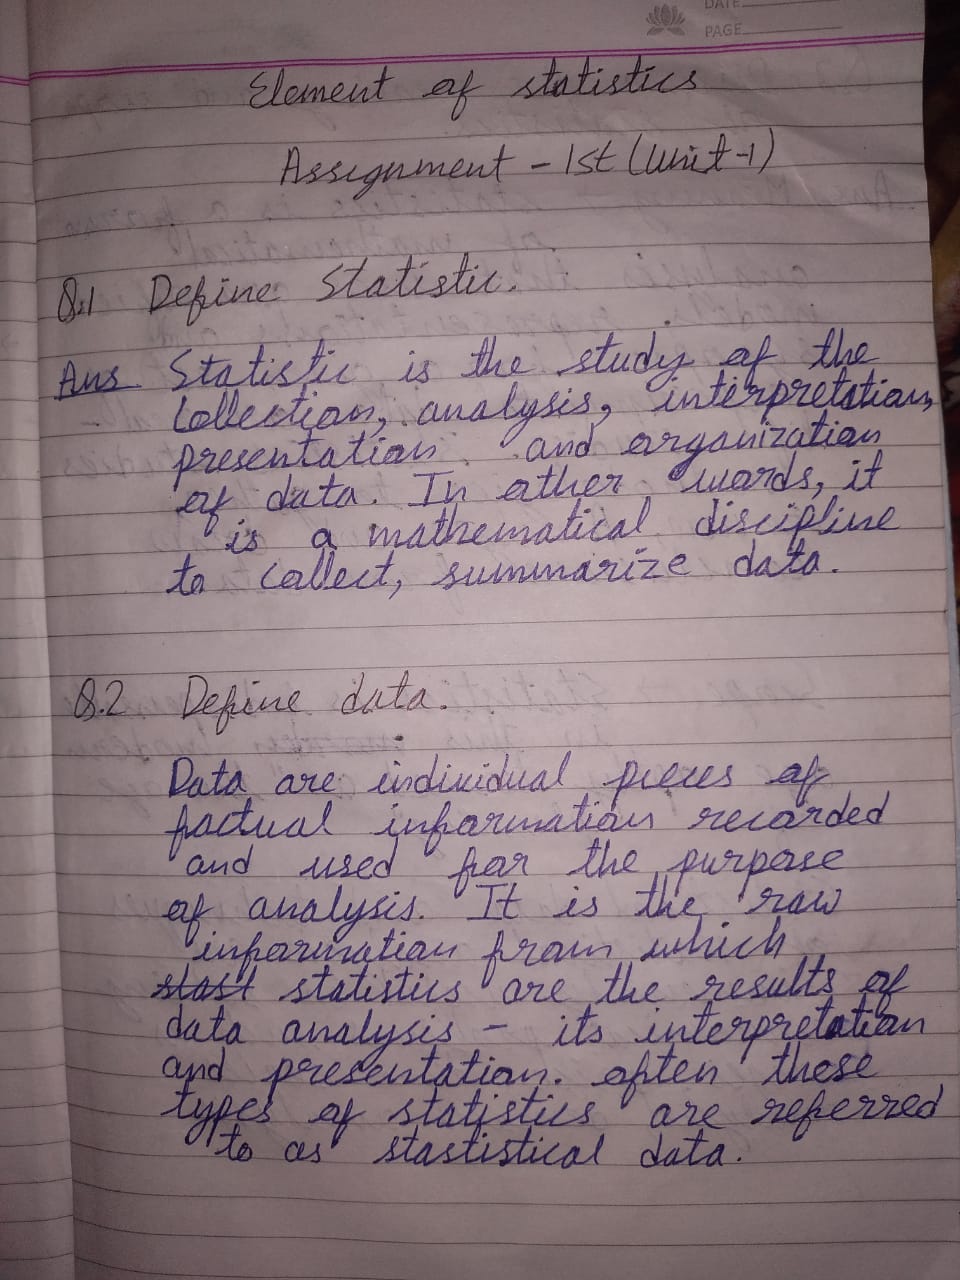 DATE
PAGE
Element of statistics
Assignment - 1st (Unit-1)
Q.1 Define Statistic.
Ans Statistic is the study of the
collection, analysis, interpretation,
presentation and organization
of data. In other words, it
is a mathematical discipline
to collect, summarize data.
Q.2 Define data.
Data are individual pieces of
factual information recorded
and used for the purpose
of analysis. It is the raw
information from which
stast statistics are the results of
data analysis - its interpretation
and presentation. often these
types of statistics are referred
to as stastistical data.